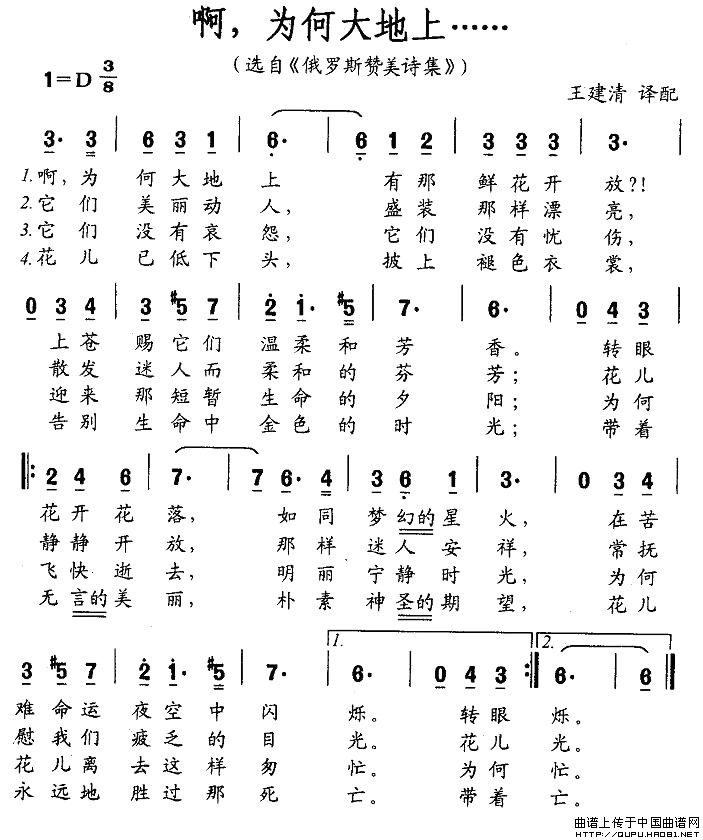 啊，为何大地上……
（选自《俄罗斯赞美诗集》）
1=D 3/8
王建清 译配
3· 3 | 6 3 1 | 6· | 6 1 2 | 3 3 3 | 3· |
1.啊，为 何大地 上 有那 鲜花开 放?!
2.它 们 美丽动 人， 盛装 那样漂 亮，
3.它 们 没有哀 怨， 它们 没有忧 伤，
4.花 儿 已低下 头， 披上 褪色衣 裳，
0 3 4 | 3 #5 7 | 2 1· #5 | 7· | 6· | 0 4 3
上苍 赐它们 温柔和 芳 香。 转眼
散发 迷人而 柔和的 芬 芳； 花儿
迎来 那短暂 生命的 夕 阳； 为何
告别 生命中 金色的 时 光； 带着
‖: 2 4 6 | 7· | 7 6· 4 | 3 6 1 | 3· | 0 3 4
花开花 落， 如同 梦幻的星 火， 在苦
静静开 放， 那样 迷人安 祥， 常抚
飞快逝 去， 明丽 宁静时 光， 为何
无言的美 丽， 朴素 神圣的期 望， 花儿
1. 2.
3 #5 7 | 2 1· #5 | 7· | 6· | 0 4 3 :‖ 6· | 6 ‖
难命运 夜空中 闪 烁。 转眼 烁。
慰我们 疲乏的 目 光。 花儿 光。
花儿离 去这样 匆 忙。 为何 忙。
永远地 胜过那 死 亡。 带着 亡。
曲谱上传于中国曲谱网
HTTP://QUPU.HAO81.NET